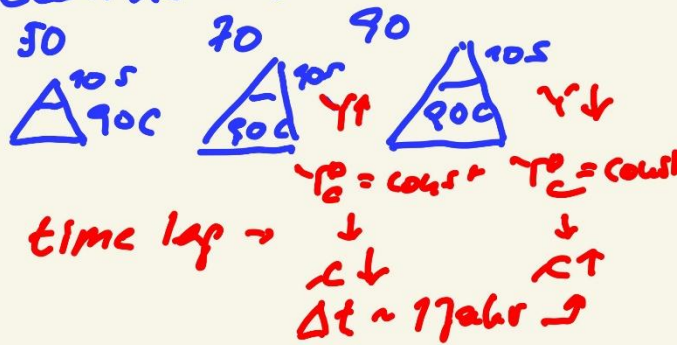 50 70 90
10S 10S 10S
90C 90C 90C
Y↑ Y↓
= const = const
time lag → ↓ ↓
C↓ C↑
Δt ~ 1 Jahr